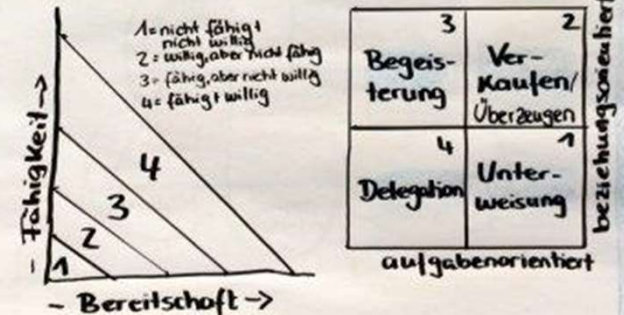 1=nicht fähig+
nicht willig
2=willig, aber nicht fähig
3=fähig, aber nicht willig
4=fähig+willig
4
3
2
1
- Fähigkeit →
- Bereitschaft →
3
Begeis-
terung
2
Ver-
kaufen/
Überzeugen
4
Delegation
1
Unter-
weisung
aufgabenorientiert
beziehungsorientiert